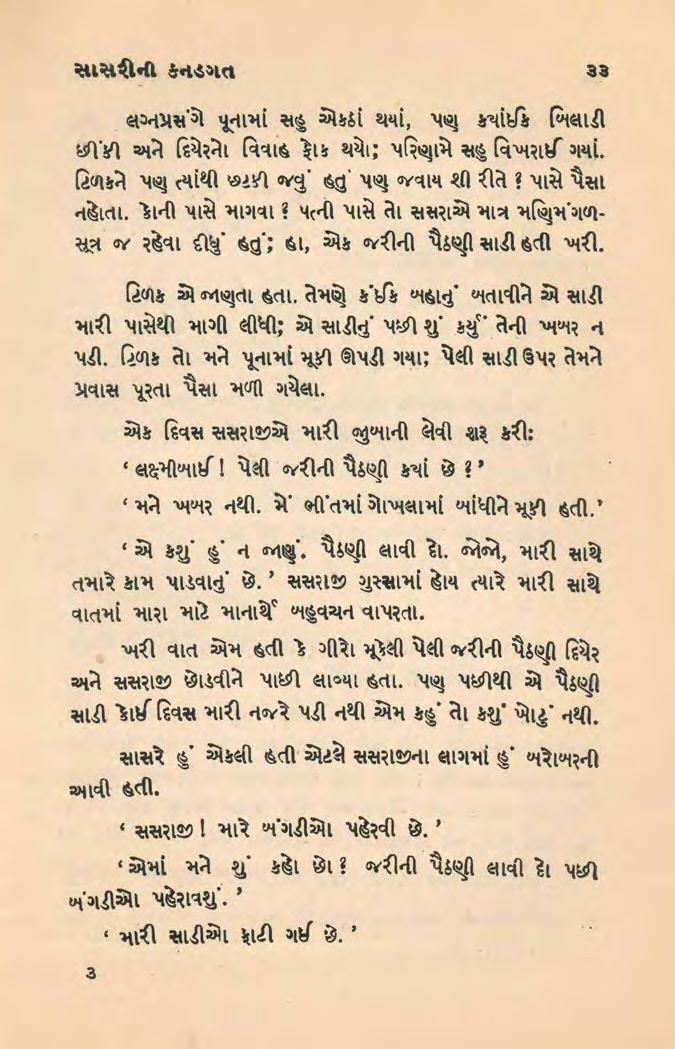 સાસરીની કનડગત ૩૩
લગ્નપ્રસંગે પૂનામાં સહુ એકઠાં થયાં, પણ કયાંઈક બિલાડી
છીંકી અને દિયેરનો વિવાહ ફોક થયો; પરિણામે સહુ વિખરાઈ ગયાં.
ટિળકને પણ ત્યાંથી છટકી જવું હતું પણ જવાય શી રીતે ? પાસે પૈસા
નહોતા. કોની પાસે માગવા ? પત્ની પાસે તો સસરાએ માત્ર મણિમંગળ-
સૂત્ર જ રહેવા દીધું હતું; હા, એક જરીની પૈઠણી સાડી હતી ખરી.
ટિળક એ જાણતા હતા. તેમણે કંઈક બહાનું બતાવીને એ સાડી
મારી પાસેથી માગી લીધી; એ સાડીનું પછી શું કર્યું તેની ખબર ન
પડી. ટિળક તો મને પૂનામાં મૂકી ઊપડી ગયા; પેલી સાડી ઉપર તેમને
પ્રવાસ પૂરતા પૈસા મળી ગયેલા.
એક દિવસ સસરાજીએ મારી જુબાની લેવી શરૂ કરીઃ
‘ લક્ષ્મીબાઈ ! પેલી જરીની પૈઠણી કયાં છે ? ’
‘ મને ખબર નથી. મેં ભીંતમાં ગોખલામાં બાંધીને મૂકી હતી. ’
‘ એ કશું હું ન જાણું. પૈઠણી લાવી દો. જોજો, મારી સાથે
તમારે કામ પાડવાનું છે. ’ સસરાજી ગુસ્સામાં હોય ત્યારે મારી સાથે
વાતમાં મારા માટે માનાર્થે બહુવચન વાપરતા.
ખરી વાત એમ હતી કે ગીરો મૂકેલી પેલી જરીની પૈઠણી દિયેર
અને સસરાજી છોડવીને પાછી લાવ્યા હતા. પણ પછીથી એ પૈઠણી
સાડી કોઈ દિવસ મારી નજરે પડી નથી એમ કહું તો કશું ખોટું નથી.
સાસરે હું એકલી હતી એટલે સસરાજીના લાગમાં હું બરોબરની
આવી હતી.
‘ સસરાજી ! મારે બંગડીઓ પહેરવી છે. ’
‘ એમાં મને શું કહો છો ? જરીની પૈઠણી લાવી દો પછી
બંગડીઓ પહેરાવશું. ’
‘ મારી સાડીઓ ફાટી ગઈ છે. ’
૩